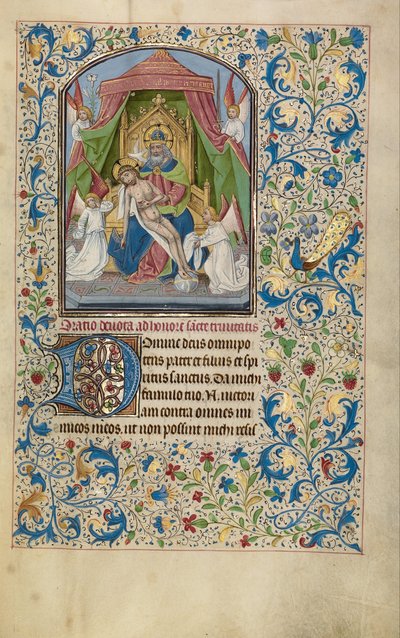 Oratio deuota ad honorē sācte trinitatis
Domine deus omnipo
tens pater et filius et spi
ritus sanctus. Da michi
famulo tuo. N. uictori
am contra omnes ini
micos meos. ut non possint michi resis